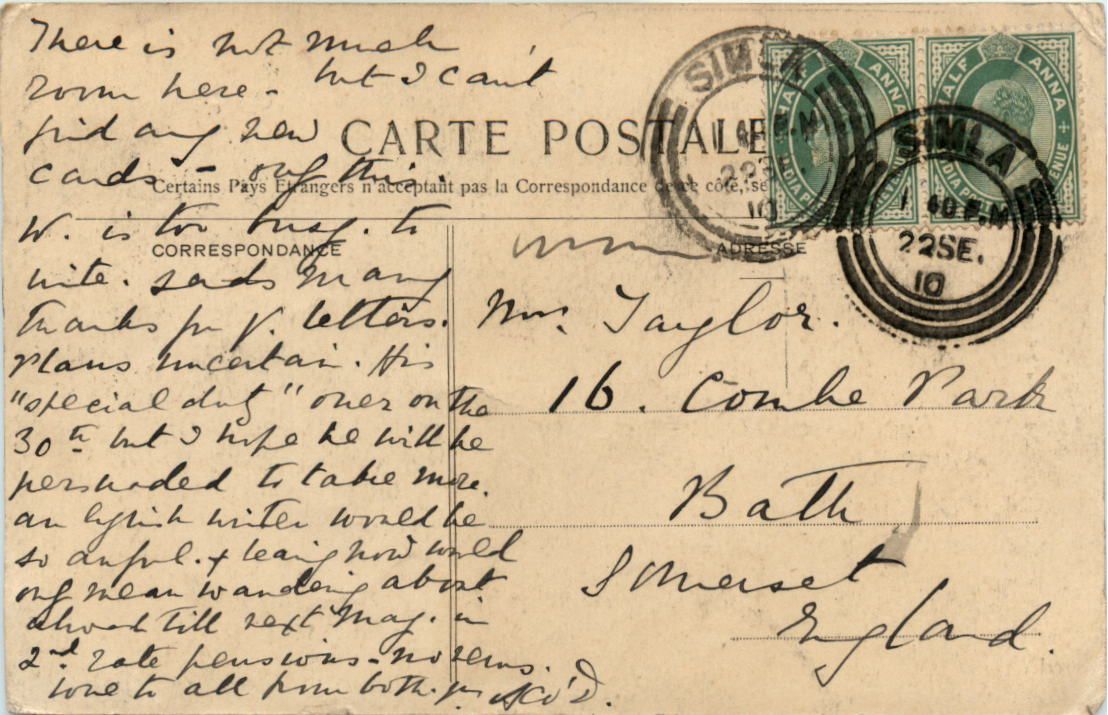 There is not much
room here - but I can't
find any new
cards - only this.
W. is too busy. to
write. sends many
thanks for y. letters.
Plans uncertain. His
"special duty" over on the
30th but I hope he will be
persuaded to take more.
an English winter would be
so awful. & leaving now would
only mean wandering about
abroad till next May. in
2nd rate pensions - no news.
love to all from both. yr
CARTE POSTALE
Certains Pays Etrangers n'acceptant pas la Correspondance de ce côté, se
CORRESPONDANCE
ADRESSE
SIMLA
22SE.
10
HALF ANNA
INDIA P
REVENUE
HALF ANNA
INDIA P
REVENUE
SIMLA
1 40 P.M
22SE.
10
Mrs. Taylor.
16. Combe Park
Bath
Somerset
England.